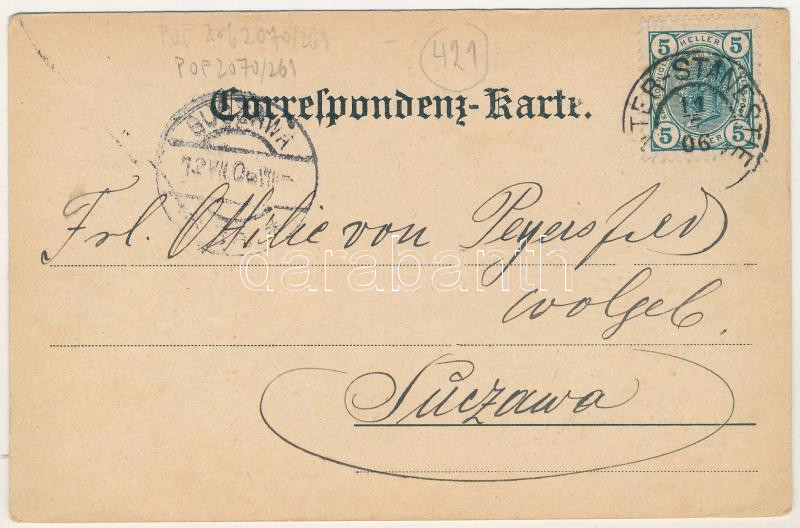 POF 2070/261
POF 2070/261
421
Correspondenz-Karte.
5 HELLER 5
5 5
UNTER-STANESTIE
06
SUCZAWA
12 VII 06
Frl. Ottilie von Peyersfeld
wolgeb.
Suczawa
darabanth